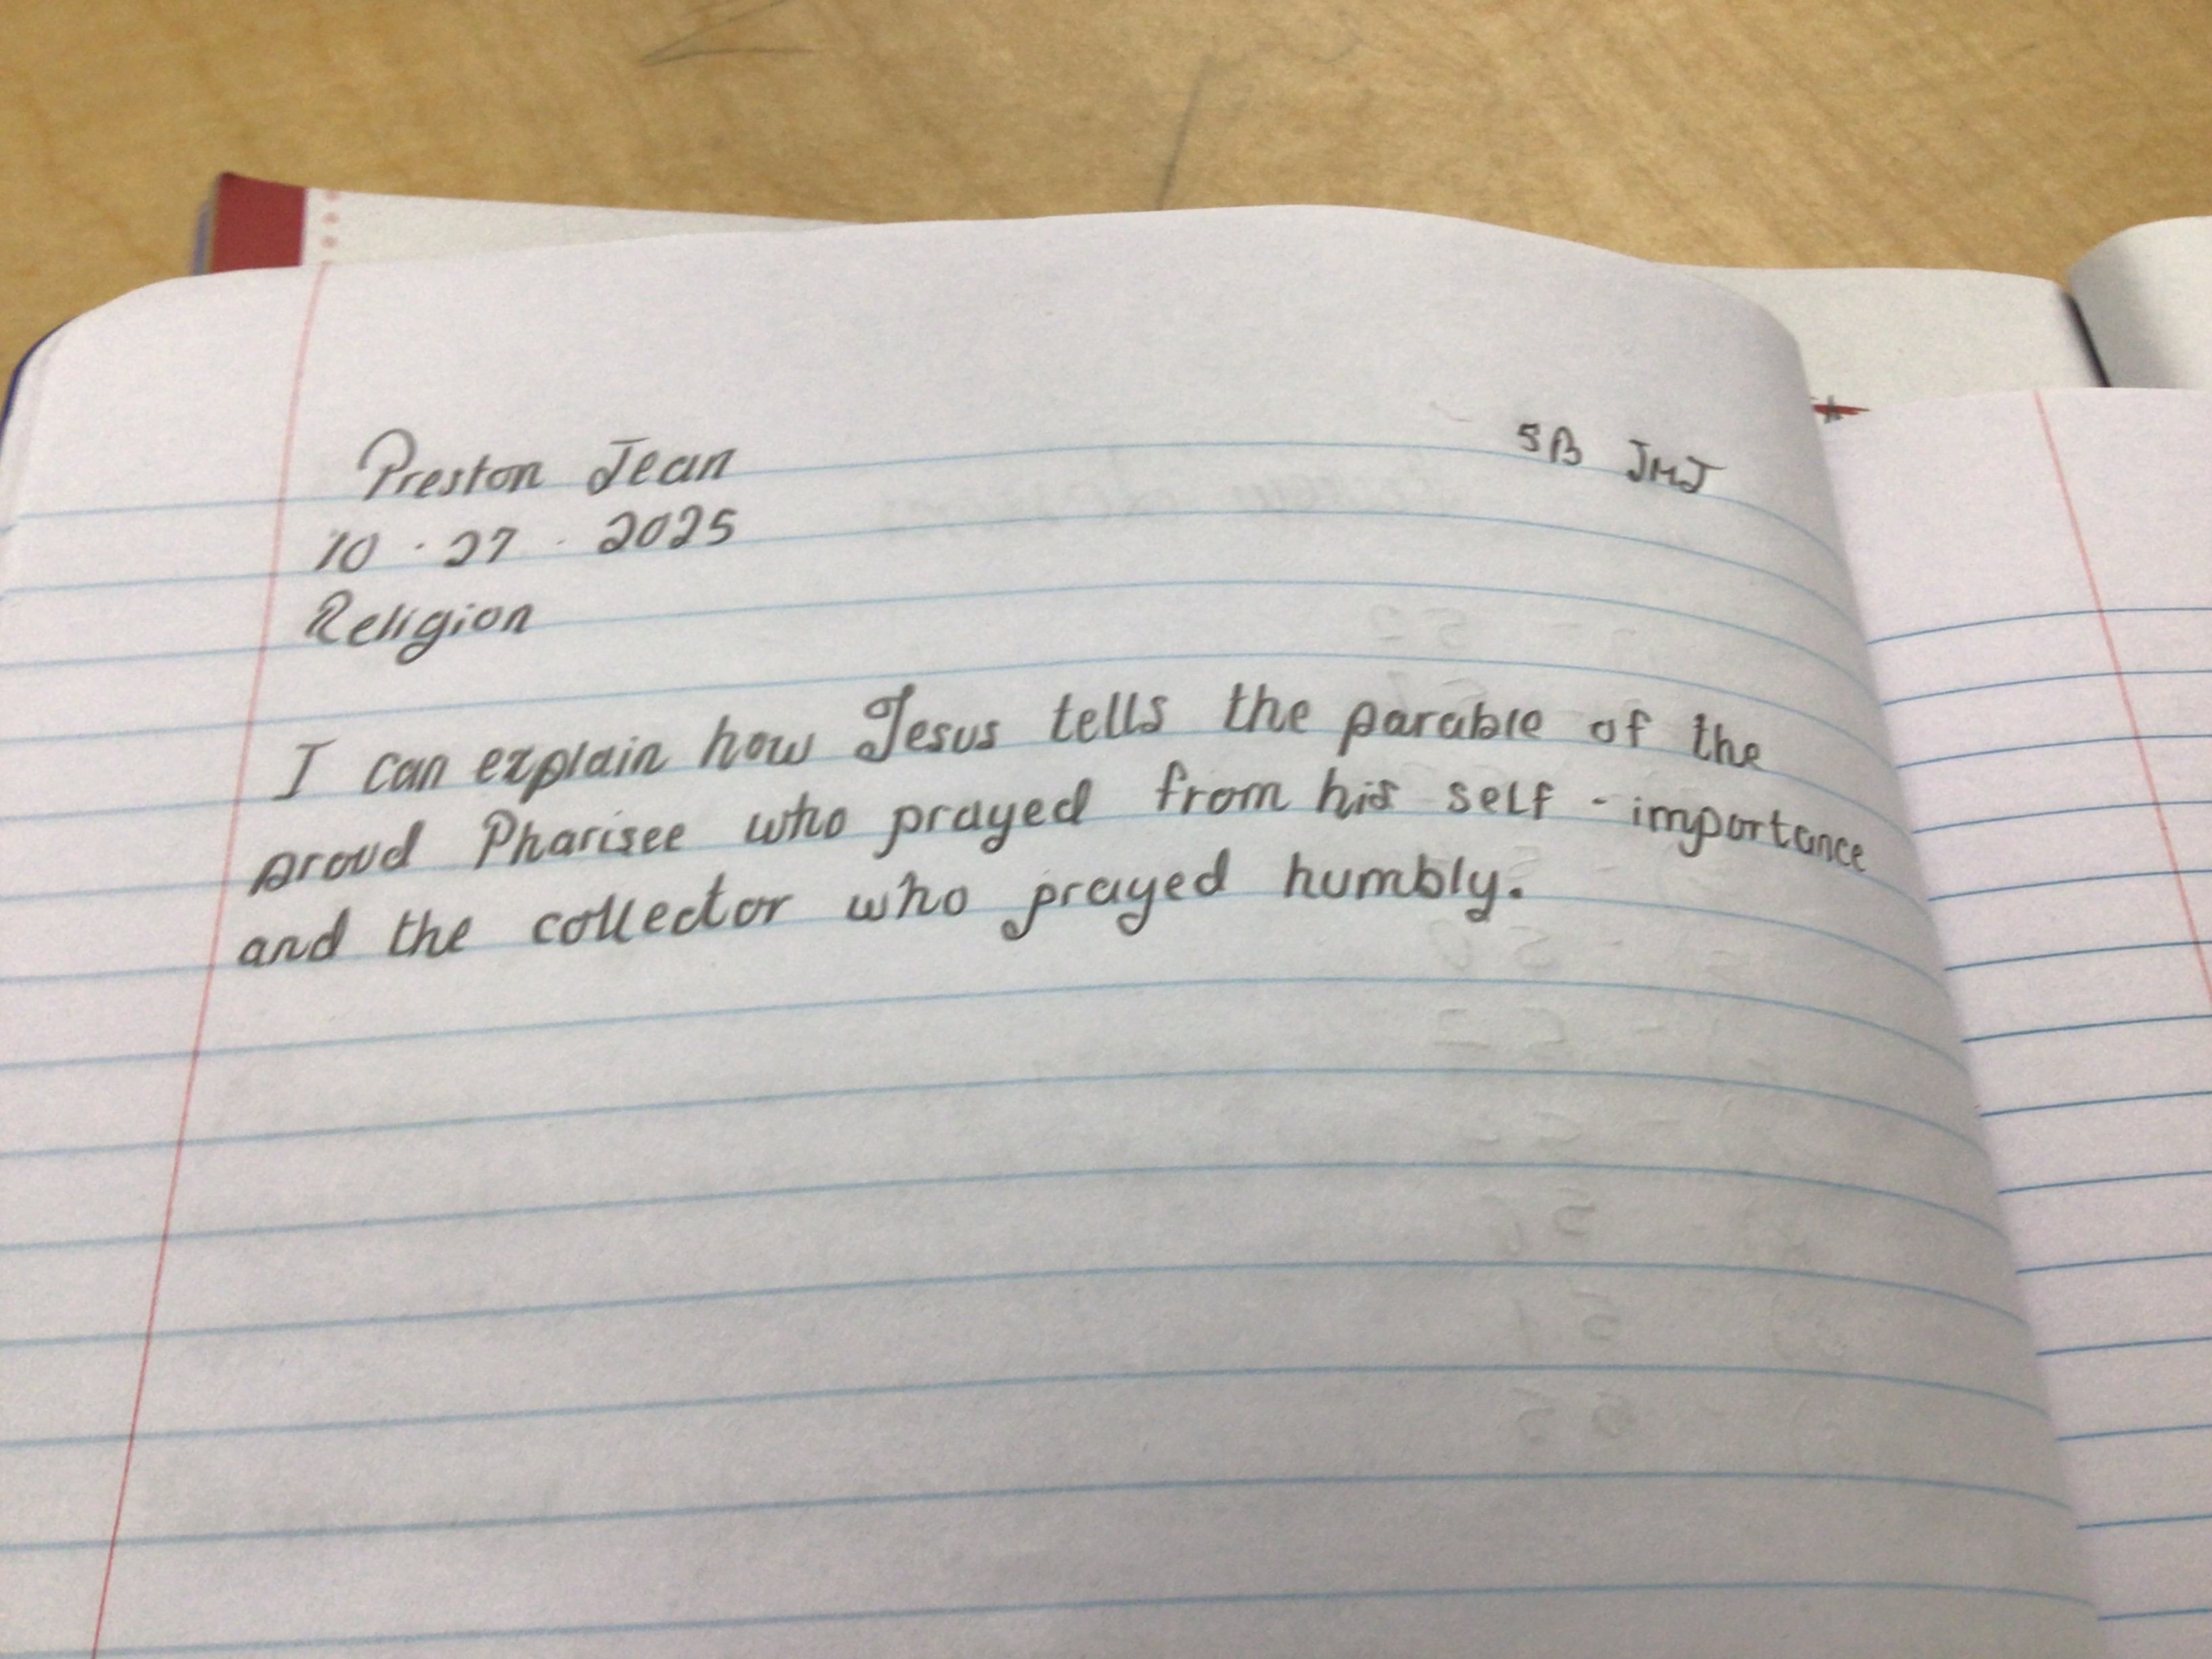 Preston Jean 5B JMJ
10 · 27 · 2025
Religion
I can explain how Jesus tells the parable of the
proud Pharisee who prayed from his self - importance
and the collector who prayed humbly.